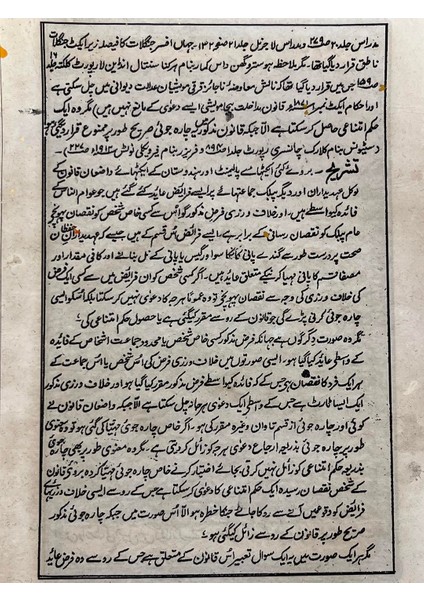 مدراس جلد ۲ ص۲۷۹ و مدراس لا جرنل جلد ۲۱ صفحہ ۱۳۲۔ جہاں افسر جنگلات کا فیصلہ زیر ایکٹ جنگلات
ناطق قرار دیا گیا تھا۔ مگر ملاحظہ ہو بنام ہرکنا سنتال انڈین لا رپورٹ کلکتہ جلد
ص۱۵۹ جس میں قرار دیا گیا تھا کہ نالش معاوضہ ناجائز قرقی مویشیان عدالت دیوانی میں چل سکتی ہے
اور احکام ایکٹ نمبر ۱ ۱۸۷۱ء قانون مداخلت بیجا مویشی ایسے دعوی کے مانع نہیں ہیں) مگر وہ ایک
حکم امتناعی حاصل کر سکتا ہے الا جبکہ قانون مذکور میں یہ چارہ جوئی صریح طور پر ممنوع قرار دیگئی ہو
(سٹیونس بنام کلارک چانسری رپورٹ جلد و فریزر بنام ویکلی نوٹس ۱۹۱۳ء ص۲۲۷)۔
تشریح۔ بروے کئی ایکٹہاے پارلیمنٹ اور ہندوستان کے ایکٹہاے واضعان قانون کے
لوکل عہدیداران اور دیگر پبلک جماعتہاے پر ایسے فرائض عائد کئے گئے ہیں جو عوام الناس کے
فائدہ کیواسطے ہیں۔ اور خلاف ورزی فرض مذکور گو اس سے کسی خاص شخص کو نقصان پہونچے
عام پبلک کو نقصان رسانی کے برابر ہے۔ ایسے فرائض اس قسم کے ہیں جیسے کہ عہدیداران حفظان
صحت پر درست طور سے گندے پانی کا نکاسا سوا اور گیس یا پانی کے نل بنانے اور کافی مقدار اور
مصفا قسم کا پانی مہیا کرنیکے متعلق عائد ہیں۔ اگر کسی شخص کو ان فرائض میں سے کسی ایک فرض
کی خلاف ورزی کی وجہ سے نقصان پہونچے تو وہ عموماً ہرجہ کا دعوی نہیں کر سکتا بلکہ اسکو ایسی
چارہ جوئی کرنی پڑے گی جو قانون کے رو سے مقرر کیگئی ہے یا حصول حکم امتناعی کی۔
مگر وہ صورت دگر گوں ہے جہاں کہ فرض مذکور کسی خاص شخص یا محدود جماعت اشخاص کے فائدہ
کے واسطے عائد کیا گیا ہو۔ ایسی صورتوں میں خلاف ورزی فرض کی اس شخص یا اس جماعت کے
ہر ایک فرد کا نقصان ہے جس کے فائدہ کیواسطے فرض مذکور مقرر کیا گیا ہو اور خلاف ورزی مذکور
ایک ایسا ٹارٹ ہے جس کے واسطے ایک دعوی ہرجانہ چل سکتا ہے الا جبکہ واضعان قانون نے
کوئی اور چارہ جوئی از قسم تاوان وغیرہ مقرر کی ہو۔ اگر کوئی خاص چارہ جوئی مہیا کی گئی ہو تو وہ معنوی
طور پر چارہ جوئی بذریعہ ارجاع دعوی ہرجہ کو زائل کر دیتی ہے۔ مگر وہ معنوی طور پر بھی چارہ جوئی
بذریعہ حکم امتناعی کو زائل نہیں کرتی۔ بجائے اختیار کرنے خاص چارہ جوئی مہیا کردہ بروئے قانون
کے شخص نقصان رسیدہ ایک حکم امتناعی کا دعوی کر سکتا ہے جس کے رو سے ایسی خلاف ورزی ہاے
فرائض کو وقوع میں آنے سے روکا جائے جن کا خطرہ ہو الا اس صورت میں جبکہ چارہ جوئی مذکور
صریح طور پر قانون کے رو سے زائل کیگئی ہو۔
مگر ہر ایک صورت میں یہ ایک سوال تعبیر اس قانون کے متعلق ہے جس کے رو سے وہ فرض عائد